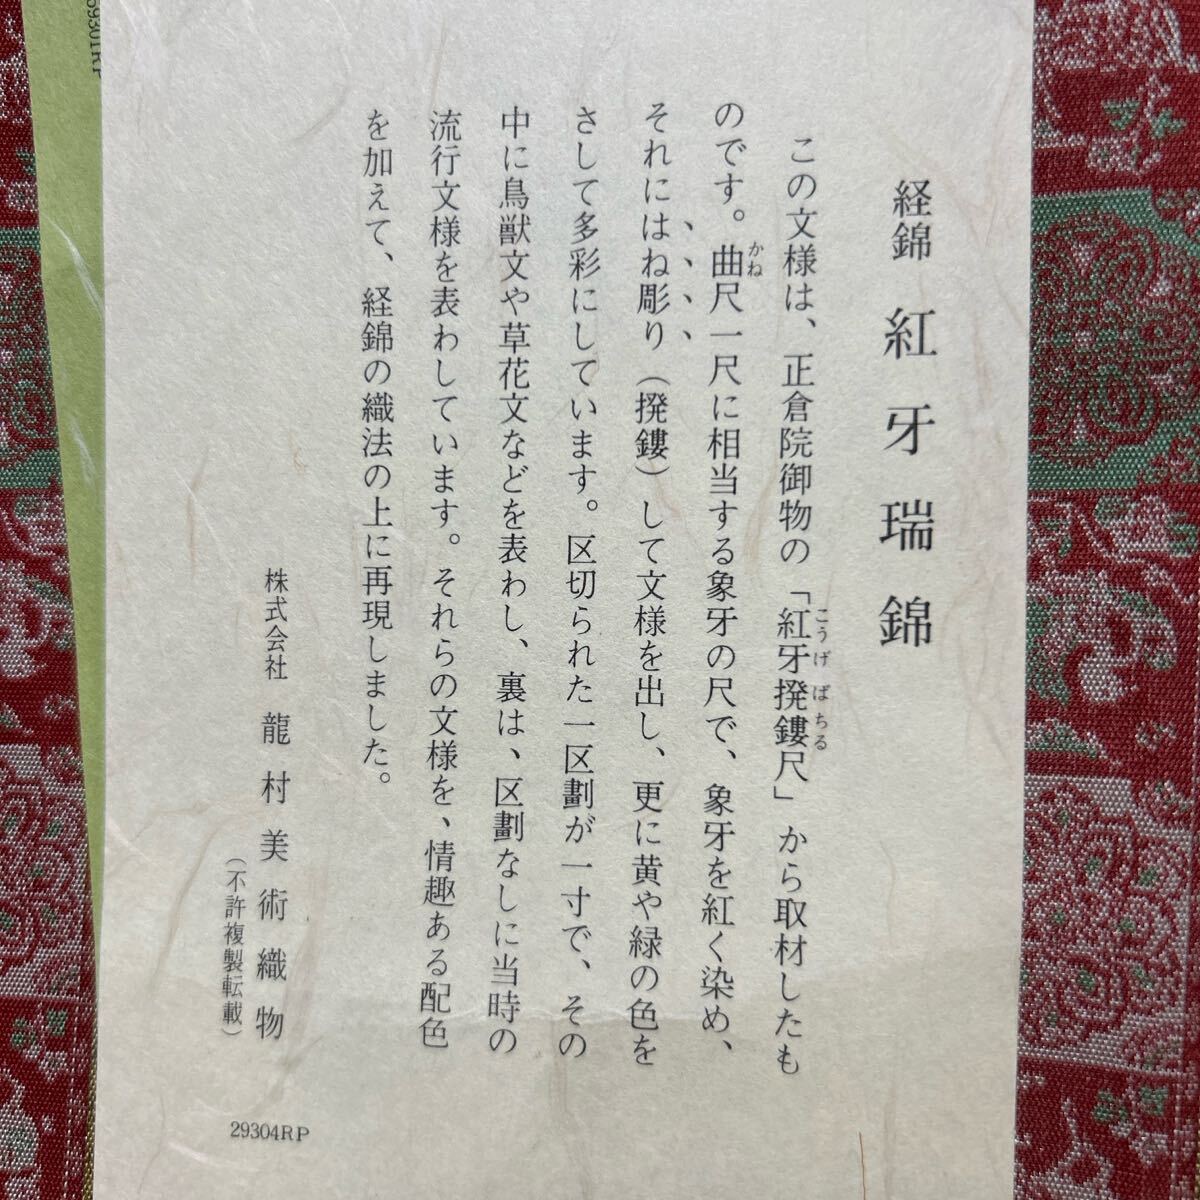 経錦 紅牙瑞錦
この文様は、正倉院御物の「紅牙撥鏤尺」から取材したも
こうげ ばちる
のです。曲尺一尺に相当する象牙の尺で、象牙を紅く染め、
かね
それにはね彫り（撥鏤）して文様を出し、更に黄や緑の色を
さして多彩にしています。区切られた一区劃が一寸で、その
中に鳥獣文や草花文などを表わし、裏は、区劃なしに当時の
流行文様を表わしています。それらの文様を、情趣ある配色
を加えて、経錦の織法の上に再現しました。
株式会社 龍村美術織物
（不許複製転載）
29304RP